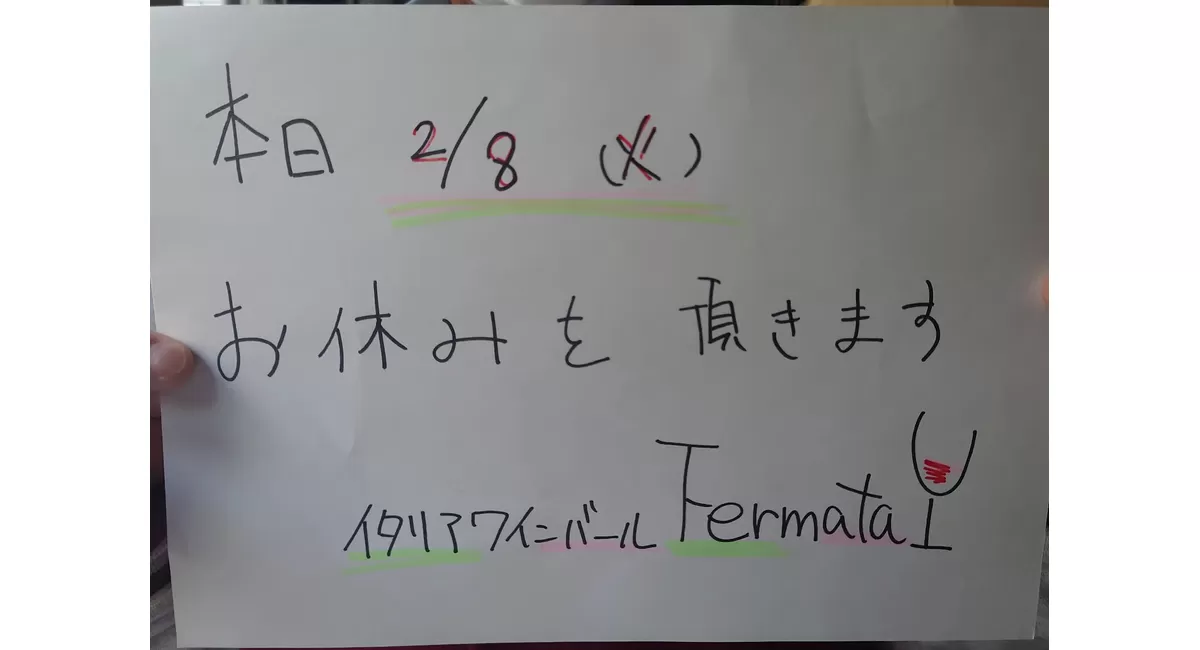 本日 2/8 (火)
お休みを 頂きます
イタリアワインバール Fermata